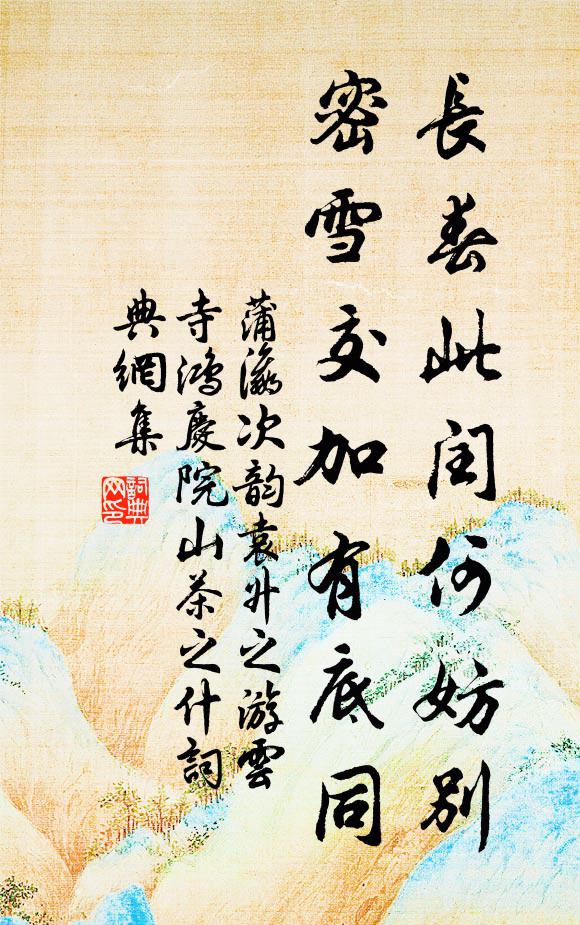 長春此閏何妨別
密雪交加有底同
蒲瀛次韵袁升之游雲
寺鴻慶院山茶之什詞
典網集
詞典
網印